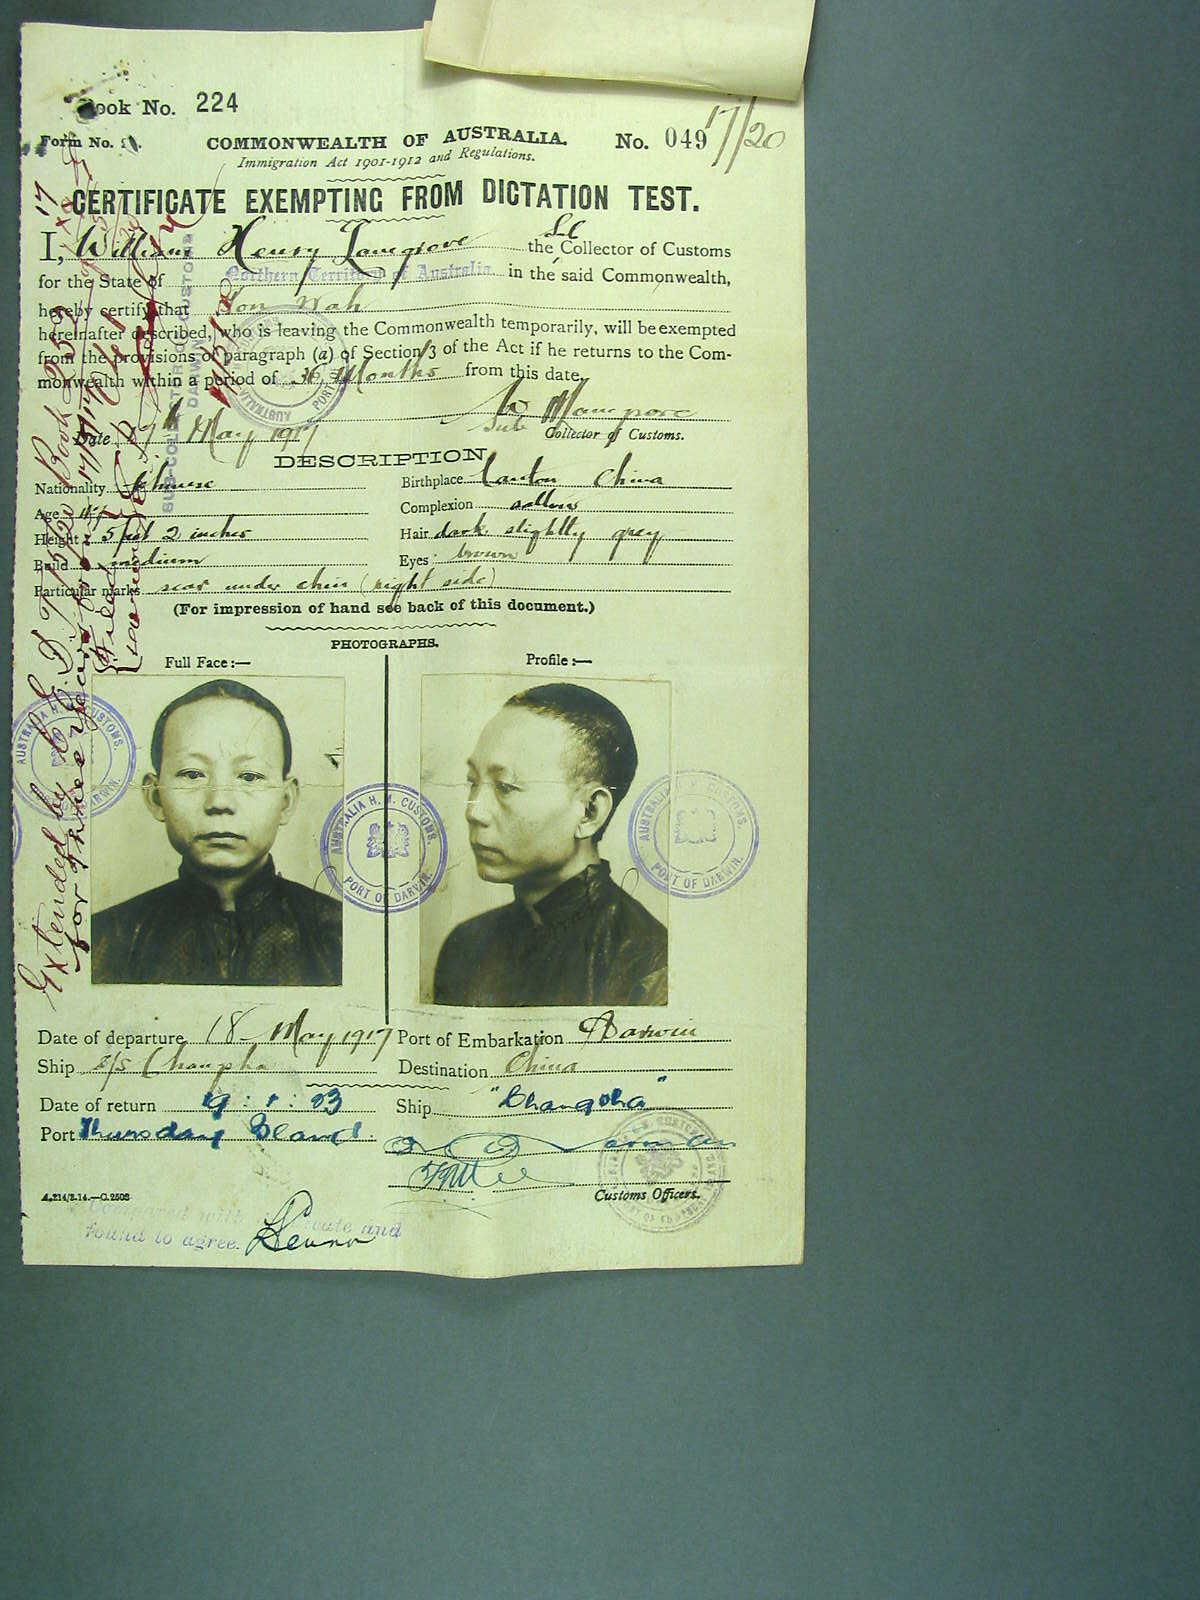 Book No. 224
Form No.
COMMONWEALTH OF AUSTRALIA.
No. 049
17/20
Immigration Act 1901-1912 and Regulations.
CERTIFICATE EXEMPTING FROM DICTATION TEST.
I, William Henry the Collector of Customs
for the State of Northern Territory of Australia in the said Commonwealth,
hereby certify that Wah
hereinafter described, who is leaving the Commonwealth temporarily, will be exempted
from the provisions of paragraph (a) of Section 3 of the Act if he returns to the Com-
monwealth within a period of 36 Months from this date.
Date May 1917
Sub Collector of Customs.
SUB-COLLECTOR OF CUSTOMS
DARWIN
DESCRIPTION
Nationality Chinese
Birthplace Canton China
Age
Complexion sallow
Height 5 feet 2 inches
Hair dark slightly grey
Build medium
Eyes brown
Particular marks scar under chin (right side)
(For impression of hand see back of this document.)
PHOTOGRAPHS.
Full Face:—
Profile:—
AUSTRALIA H. M. CUSTOMS.
PORT OF DARWIN.
AUSTRALIA H. M. CUSTOMS.
PORT OF DARWIN.
AUSTRALIA H. M. CUSTOMS.
PORT OF DARWIN.
Extended by C. E. D. T. Book 252
for three years from
Date of departure 18 May 1917
Port of Embarkation Darwin
Ship s/s
Destination China
Date of return
Ship "Changsha"
Port Thursday Island.
Customs Officers.
A.214/2.14.—C.2508
Compared with and
found to agree.